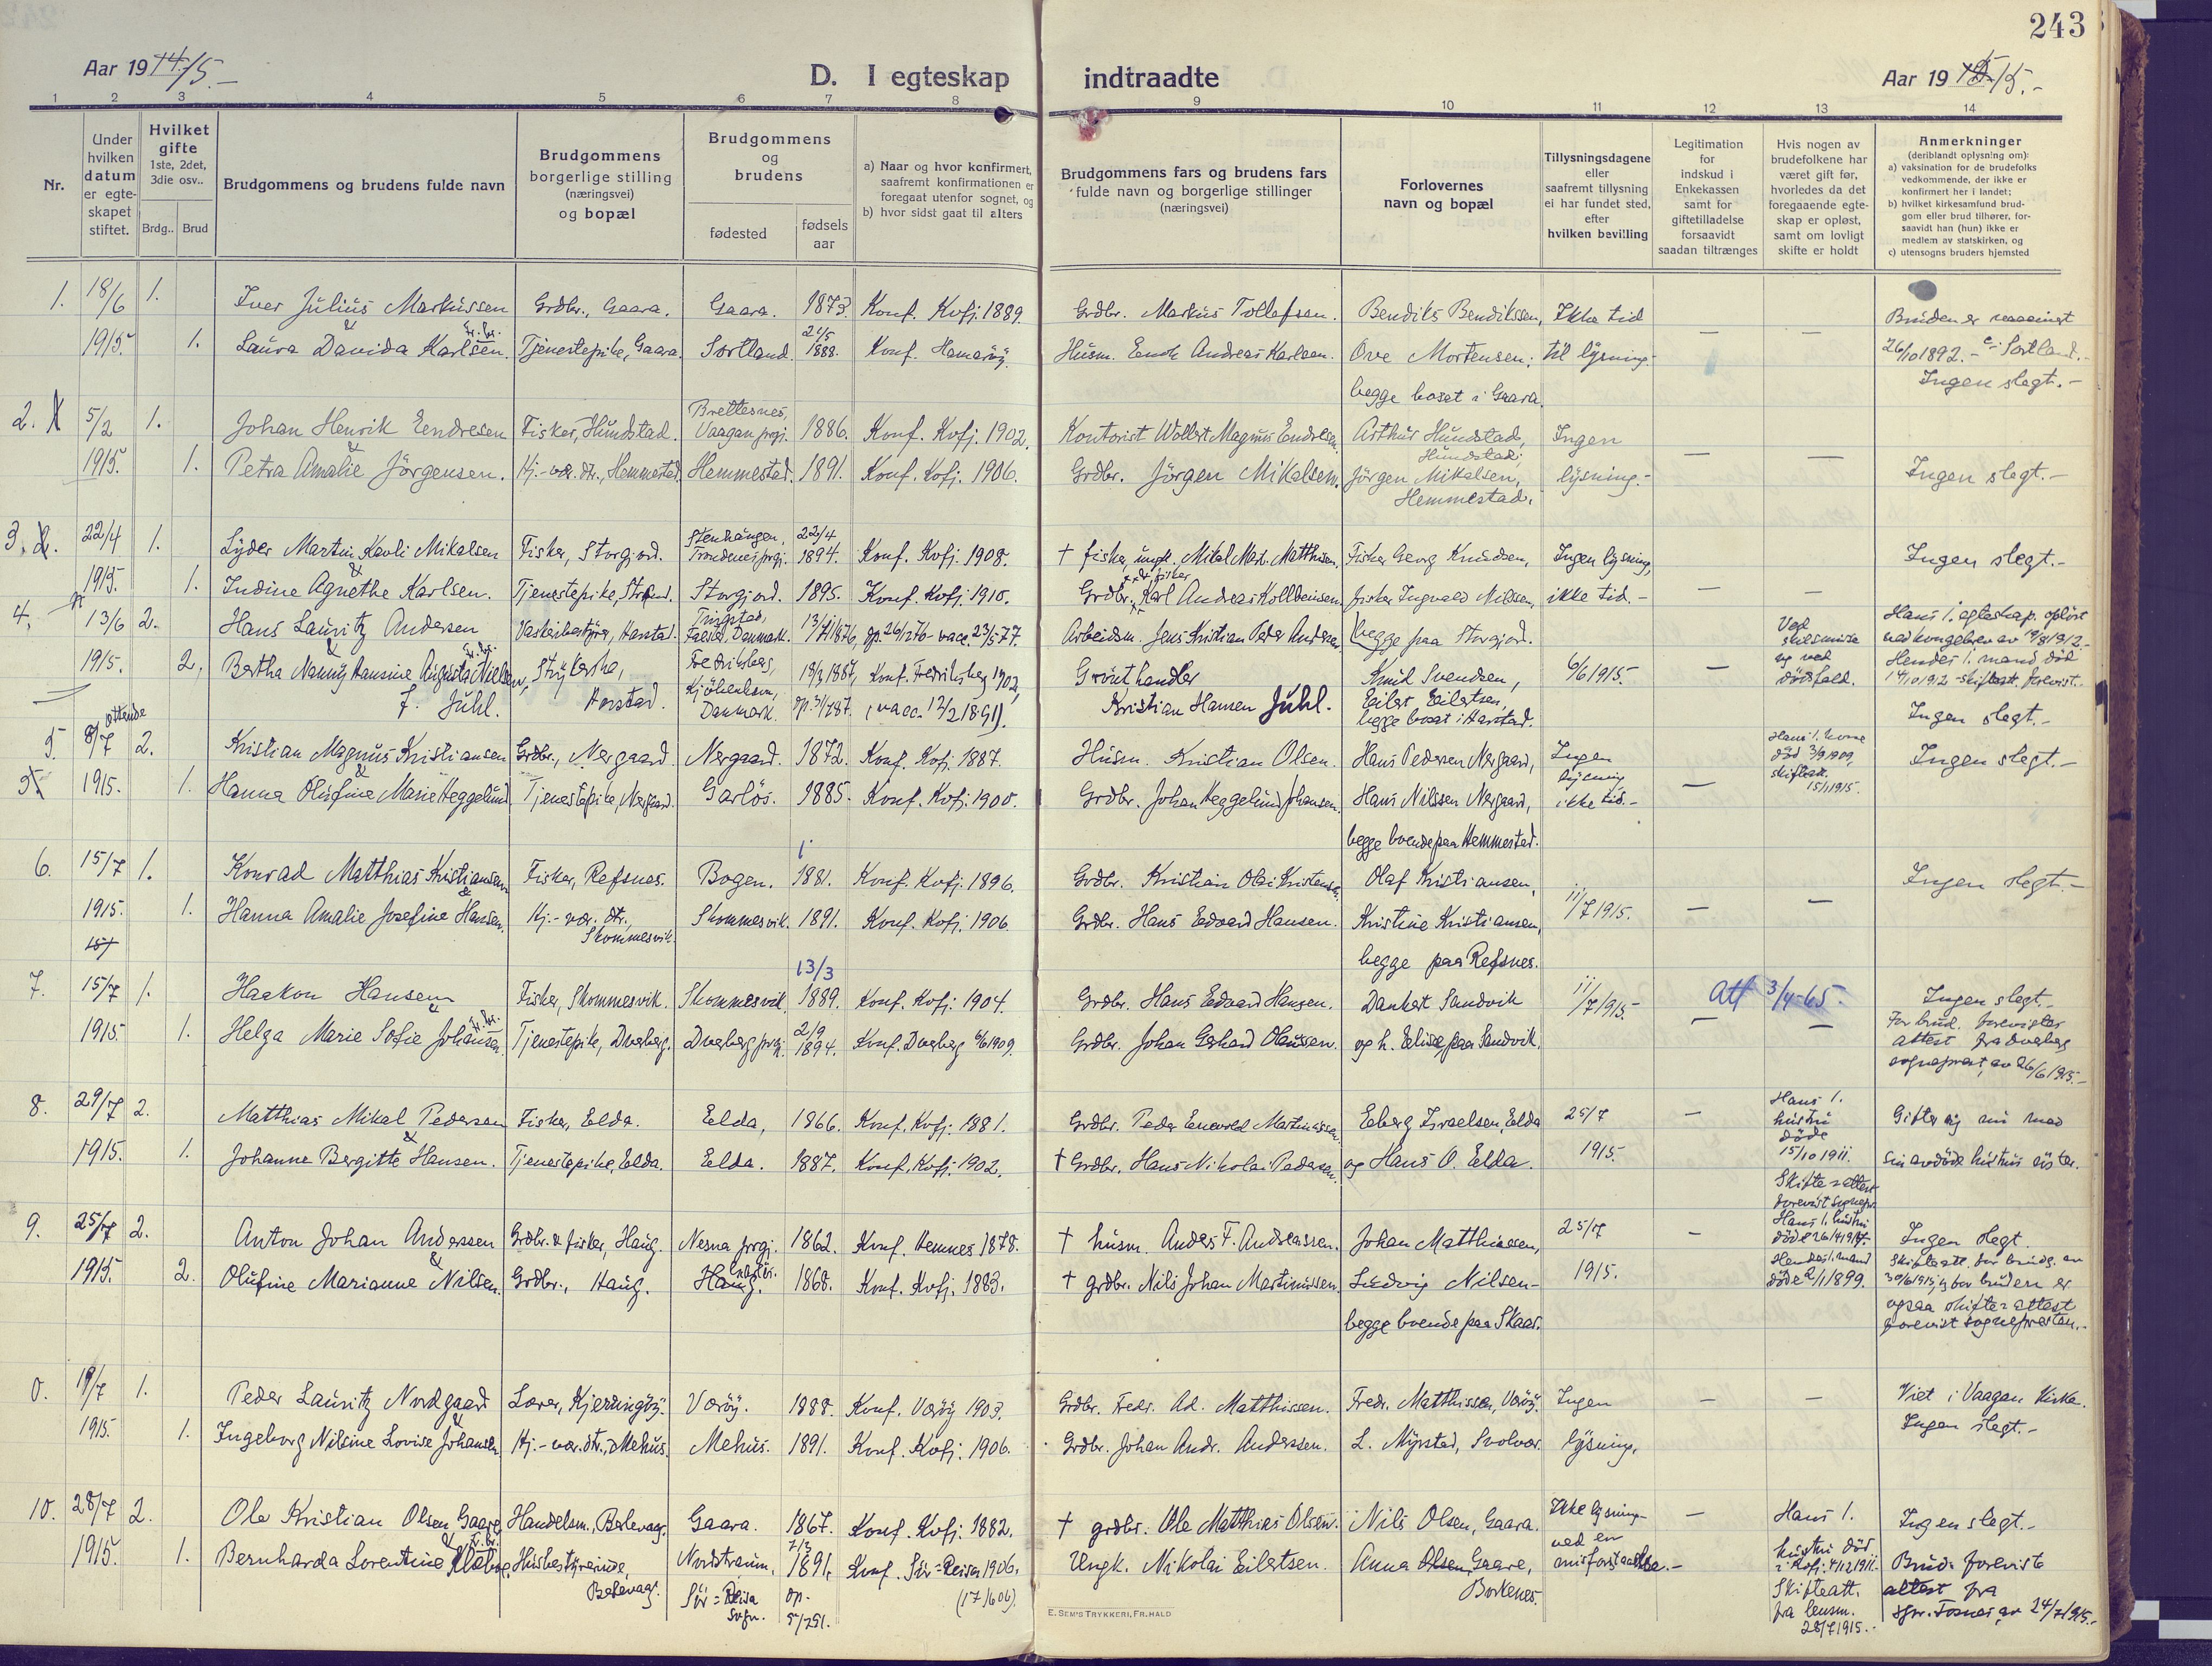 243
Aar 19 14/15.-
D. I egteskap indtraadte
Aar 19 15.-
1 2 3 4 5 6 7 8 9 10 11 12 13 14
Nr.
Under hvilken datum er egteskapet stiftet.
Hvilket gifte 1ste, 2det, 3die osv..
Brdg.. Brud
Brudgommens og brudens fulde navn
Brudgommens borgerlige stilling (næringsvei) og bopæl
Brudgommens og brudens
fødested
fødsels aar
a) Naar og hvor konfirmert, saafremt konfirmationen er foregaat utenfor sognet, og
b) hvor sidst gaat til alters
Brudgommens fars og brudens fars fulde navn og borgerlige stillinger (næringsvei)
Forlovernes navn og bopæl
Tillysningsdagene eller saafremt tillysning ei har fundet sted, efter hvilken bevilling
Legitimation for indskud i Enkekassen samt for giftetilladelse forsaavidt saadan tiltrænges
Hvis nogen av brudefolkene har været gift før, hvorledes da det foregaaende egteskap er opløst, samt om lovligt skifte er holdt
Anmerkninger (deriblandt oplysning om):
a) vaksination for de brudefolks vedkommende, der ikke er konfirmert her i landet;
b) hvilket kirkesamfund brudgom eller brud tilhører, forsaavidt han (hun) ikke er medlem av statskirken, og
c) utensogns bruders hjemsted
1. 18/6 1. Iver Julius Markussen Grdbr., Gaara. Gaara. 1873. Konf. Kvfj. 1889. Grdbr. Markus Tollefsen. Bendiks Bendikssen, Ikke tid Bruden er vaccinert
& 
1915. 1. Laura Davida Karlsen. Tjenestepike, Gaara. Sortland. 1888. Konf. Hamarøy. Husm. Andreas Karlsen. Ove Mortensen, til lysning.- — — 26/10 1892. - Sortland.-
begge boset i Gaara. Ingen slegt.-
2. 5/2 1. Johan Henrik Eendresen Fisker, Hundstad. Brettesnes, Vaagan prgj. 1886. Konf. Kvfj. 1902. Kontorist Wollert Magnus Endresen. Arthur Hundstad, Hundstad; Ingen
&
1915. 1. Petra Amalie Jörgensen. Hj.-vær. dtr., Hemmestad. Hemmestad. 1891. Konf. Kvfj. 1906. Grdbr. Jörgen Mikalsen. Jörgen Mikalsen, Hemmestad. lysning.- — — Ingen slegt.-
3. 22/4 1. Lyder Martin Kavli Mikalsen Fisker, Storjord. Stenhaugen, Trondenes prgj. 22/4 1894. Konf. Kvfj. 1908. † fisker, ungk. Mikal Mart. Matthisen. Fisker Georg Knudsen, Ingen lysning, Ingen slegt.-
&
1915. 1. Indine Agnethe Karlsen. Tjenestepike, Storjord. 1895. Konf. Kvfj. 1910. Grdbr. Karl Andreas Kolbeinsen. fisker Ingvald Nilssen, ikke tid.- — —
begge paa Storjord.
4. 13/6 2. Hans Lauritz Andersen Harstad. Danmark. Arbeidsm. Jens Kristian Peder Andersen. Hans 1. egteskap opløst ved kongebrev av
1915. 2. Bertha Nanny Hansine Augusta Nielsen, f. Juhl. Harstad. Kjöbenhavn, Danmark. (vacc. 12/2 1891). Grönthandler Kristian Hansen Juhl. Knud Svendsen, Eilert Eilertsen, begge boset i Harstad. 6/6 1915. — Ved skilsmisse og ved dödsfald. Hendes 1. mand död Ingen slegt.-
5. 8/7 ottende 2. Kristian Magnus Kristiansen Grdbr., Nergaard. Nergaard. 1872. Konf. Kvfj. 1887. Husm. Kristian Olsen. Hans Pedersen Nergaard, Ingen lysning Hans 1. kone död 3/9 1909, Ingen slegt.-
&
1915. 1. Hanna Olufine Marie Heggelund. Tjenestepike, Nergaard. Garlös. 1885. Konf. Kvfj. 1900. Grdbr. Johan Heggelund Johansen. Hans Nilssen Nergaard, ikke tid.- — skifteatt. 15/1 1915.
begge boende paa Hemmestad.
6. 15/7 1. Konrad Matthias Kristiansen Fisker, Refsnes. Bogen. 1881. Konf. Kvfj. 1896. Grdbr. Kristian Olai Kristensen. Olaf Kristiansen, Ingen slegt.-
&
1915. 1. Hanna Amalie Josefine Hansen. Hj.-vær. dtr., Skommesvik. Skommesvik. 1891. Konf. Kvfj. 1906. Grdbr. Hans Edvard Hansen. Kristine Kristiansen, 11/7 1915. — —
begge paa Refsnes.
7. 15/7 1. Haakon Hansen Fisker, Skommesvik. Skommesvik. 13/3 1889. Konf. Kvfj. 1904. Grdbr. Hans Edvard Hansen. Dankert Sandvik 11/7 1915. Att 3/4-65. Ingen slegt.-
&
1915. 1. Helga Marie Sofie Johansen. Tjenestepike, Dverberg. Dverberg prgj. 2/9 1894. Konf. Dverberg 1909. Grdbr. Johan Gerhard Olaussen. og h. Elise, paa Sandvik. — — For brud. forevistes attest fra Dverberg sogneprest, av 26/6 1915.-
8. 29/7 2. Matthias Mikal Pedersen Fisker, Elda. Elda, 1866. Konf. Kvfj. 1881. Grdbr. Peder Enevold Martinussen. Edberg Israelsen, Elda 25/7 — Hans 1. hustru döde 15/10 1911. Gifter sig nu med
&
1915. 1. Johanne Bergitte Hansen. Tjenestepike, Elda. Elda. 1887. Konf. Kvfj. 1902. † Grdbr. Hans Nikolai Pedersen. og Hans O. Elda. 1915. Skifteattest forevist sin avdöde hustrus söster.
9. 25/7 2. Anton Johan Anderssen Grdbr. & fisker, Haug. Nesna prgj. 1862. Konf. Hemnes 1878. † husm. Anders F. Andreassen. Johan Matthiassen, 25/7 — Hans 1. hustru döde Ingen slegt.
&
1915. 2. Olufine Marianne Nilsen. Grdbr., Haug. Haug. 1868. Konf. Kvfj. 1883. † grdbr. Nils Johan Martinussen. Ludvig Nilsen- 1915. Hendes 1. mand döde 2/1 1899. Skifteatt. for brudg. av 30/6 1915, og for bruden er ogsaa skifteattest forevist sognepresten.-
begge boende paa Skaar.
0. 19/7 1. Peder Lauritz Nordgaard Lærer, Kjerringöy. Væröy. 1888. Konf. Væröy 1903. Grdbr. Fredr. Ad. Matthissen. Fredr. Matthissen, Væröy. Ingen — — Viet i Vaagan Kirke.
&
1915. 1. Ingeborg Nilsine Lovise Johansen. Hj.-vær. dtr., Mehus. Mehus. 1891. Konf. Kvfj. 1906. Grdbr. Johan Andr. Anderssen. L. Myrstad, Svolvær. lysning. Ingen slegt.-
10. 28/7 2. Ole Kristian Olsen Gaare Handelsm., Berlevag. Gaara. 1867. Konf. Kvfj. 1882. † grdbr. Ole Matthias Olsen. Nils Olsen, Gaara. Ikke lysning- — Hans 1. Ingen slegt.-
&
1915. 1. Bernharda Lorentine Husbestyrerinde, Berlevag. Nordstraum, Sör-Reisa sogn. 1891, Konf. Sör-Reisa 1906. Ungk. Nikolai Eilertsen. Anna Olsen Gaare, Borkenes. ved en misforstaaelse.- hustru död i Kvfj. 4/12 1911. Skifteatt. fra lensm. 28/7 1915.- Brud. foreviste attest fra spr. Fosnes, av 24/7 1915.-
E. SEM'S TRYKKERI, FR.HALD